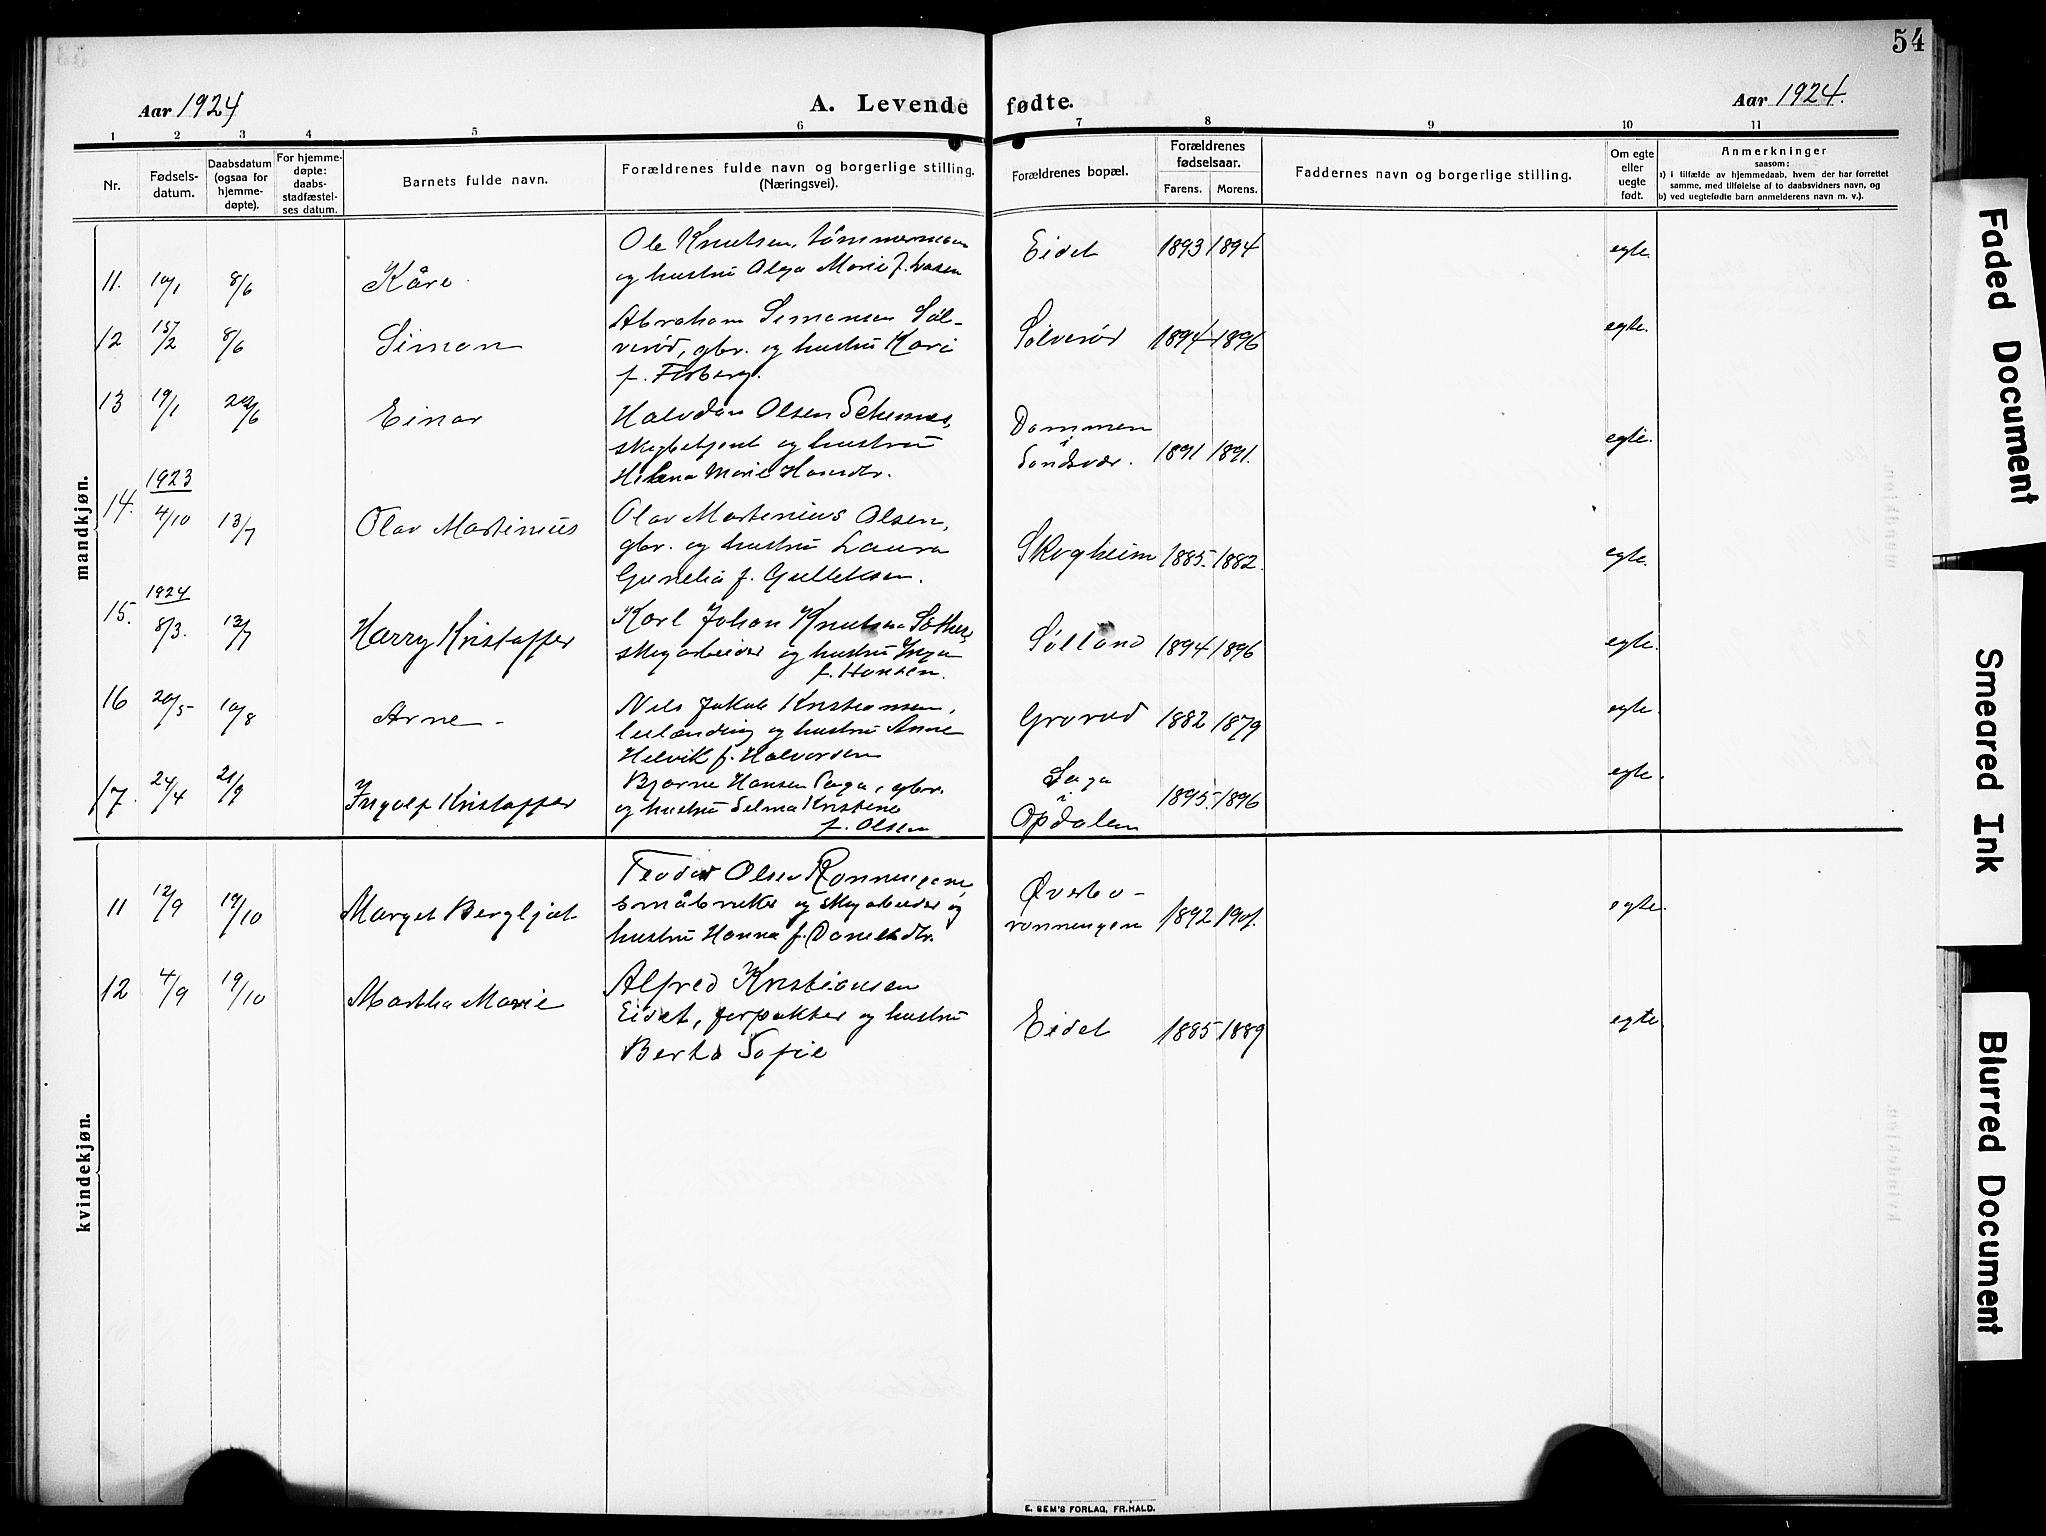 54
Aar 1924
A. Levende fødte.
Aar 1924.
1 2 3 4 5 6 7 8 9 10 11
Nr.
Fødsels-
datum.
Daabsdatum
(ogsaa for
hjemme-
døpte).
For hjemme-
døpte:
daabs-
stadfæstel-
ses datum.
Barnets fulde navn.
Forældrenes fulde navn og borgerlige stilling.
(Næringsvei).
Forældrenes bopæl.
Forældrenes
fødselsaar.
Farens. Morens.
Faddernes navn og borgerlige stilling.
Om egte
eller
uegte
født.
Anmerkninger
saasom:
a) i tilfælde av hjemmedaab, hvem der har forrettet
samme, med tilføielse af to daabsvidners navn, og
b) ved uegtefødte barn anmelderens navn m. v.).
mandkjøn.
11. 10/1 8/6 Kåre
Ole Knutsen, tømmermann
og hustru Olga Marie f.
Eidet 1893 1894 egte.
12 15/2 8/6 Simon
Abraham Simonsen Søl-
verød, gbr. og hustru Kari
f.
Sølverød 1894 1896 egte.
13 19/1 22/6 Einar
Halvdan Olsen
og hustru
Helena Marie Hansdtr.
Dammen
i
Sandsvær. 1891 1891. egte.
14. 1923
4/10 13/7 Olav Martinius
Olav Martinius Olsen,
gbr. og hustru Laura
Gunelia f. Gulliksen.
Skogheim 1885. 1882. egte.
15. 1924
8/3. 13/7 Harry Kristoffer
Karl Johan Knutsen
skogarbeider og hustru Inga
f. Hansen.
Sølland 1894 1896 egte.
16 20/5 10/8 Arne
Nils Jakob Kristiansen,
leilænding og hustru Anne
Helvik f. Halvorsen
Gravrød 1882 1879 egte.
17. 24/4 21/9 Ingolf Kristoffer
Bjarne Hansen Saga, gbr.
og hustru Selma Kristine
f. Olsen
Saga
i
Opdalen 1895. 1896 egte.
kvindekjøn.
11 12/9 19/10 Marget Bergljot
Teodor Olsen Rønningene,
småbruker og skogarbeider og
hustru Hanna f. Danielsdtr.
Øverbø-
rønningen 1892 1901. egte.
12 4/9 19/10 Martha Marie
Alfred Kristiansen
Eidet, forpakter og hustru
Berta Sofie
Eidet 1885 1889 egte.
E. SEM'S FORLAG, FR.HALD.
Faded Document
Smeared Ink
Blurred Document